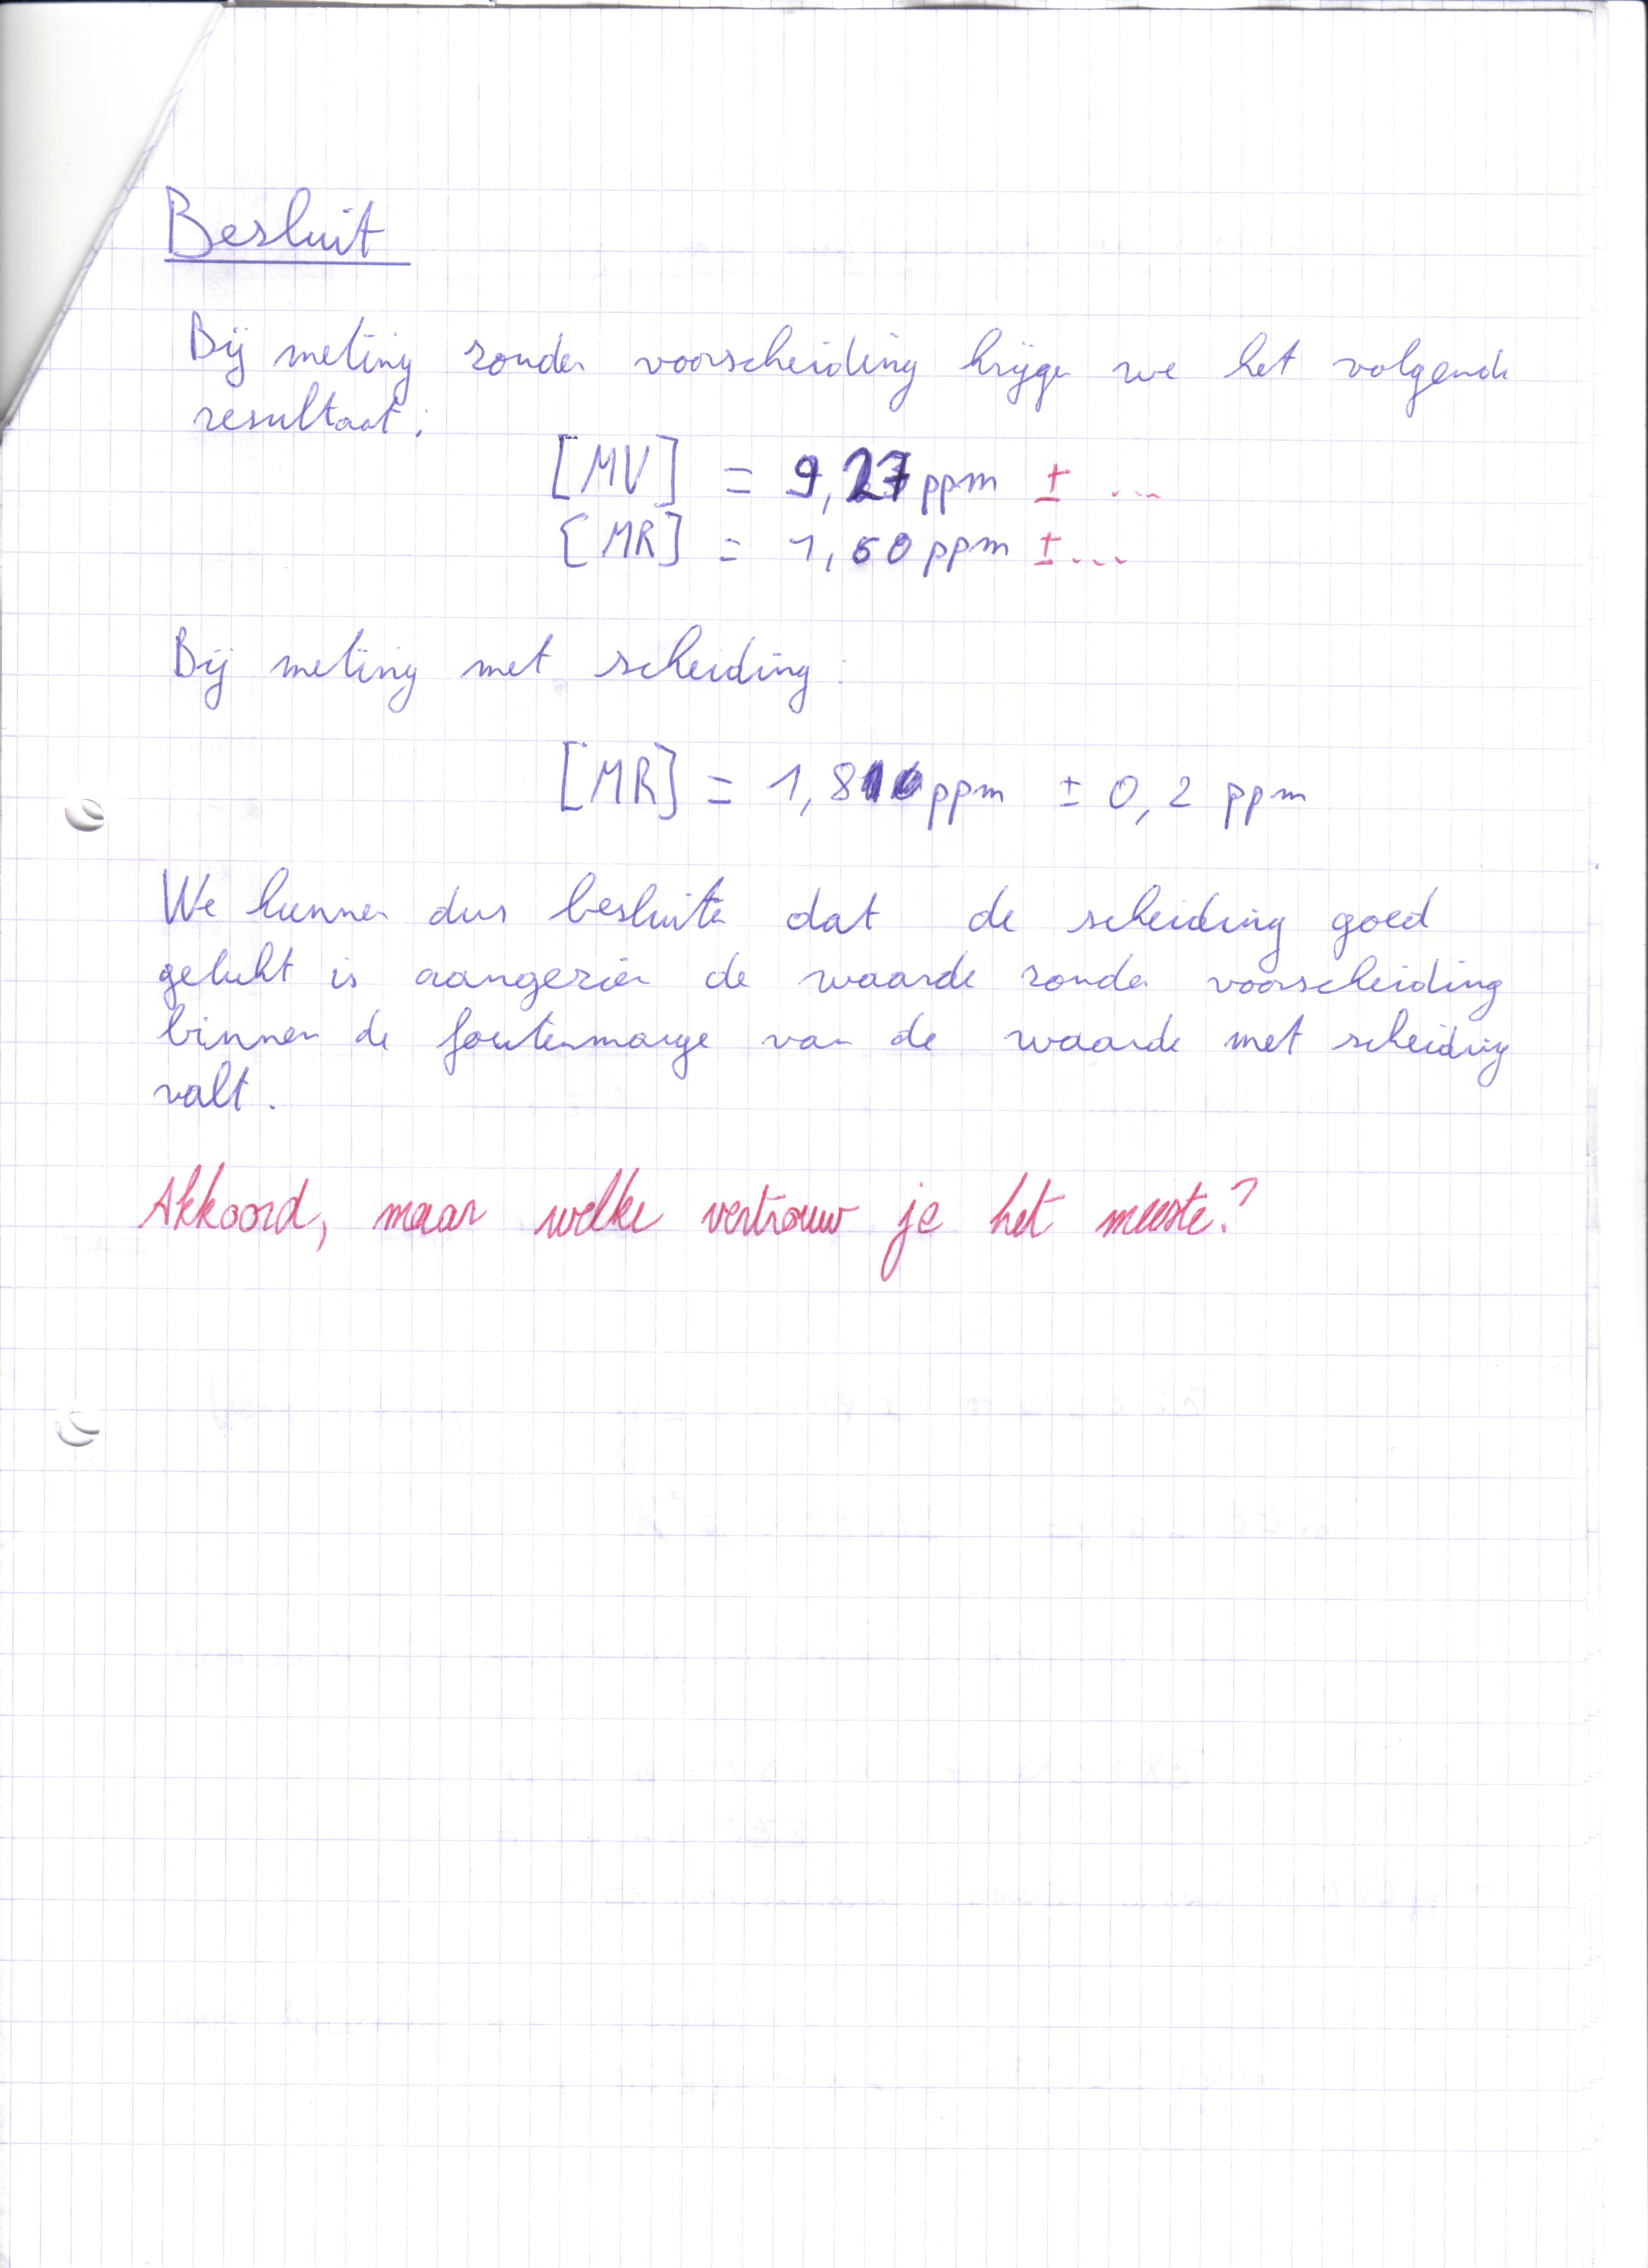 Besluit
Bij meting zonder voorscheiding krijgen we het volgende
resultaat:
[MV] = 9,27 ppm ± ...
[MR] = 1,60 ppm ± ...
Bij meting met scheiding:
[MR] = ppm ± 0,2 ppm
We kunnen dus besluiten dat de scheiding goed
gelukt is aangezien de waarde zonder voorscheiding
binnen de foutenmarge van de waarde met scheiding
valt.
Akkoord, maar welke vertrouw je het meeste?